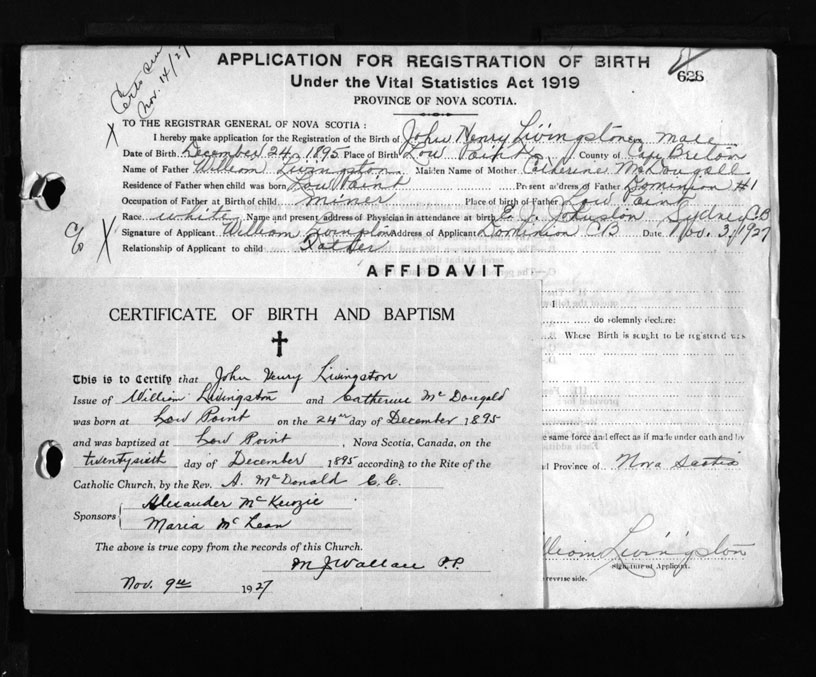 Certo sen
Nov. 14/27
APPLICATION FOR REGISTRATION OF BIRTH
628
Under the Vital Statistics Act 1919
PROVINCE OF NOVA SCOTIA.
X TO THE REGISTRAR GENERAL OF NOVA SCOTIA :
I hereby make application for the Registration of the Birth of John Henry Livingstone male
Date of Birth December 24, 1895 Place of Birth Low Point County of Cape Breton
Name of Father William Livingston Maiden Name of Mother Catherine McDougall
Residence of Father when child was born Low Point Present address of Father Dominion #1
Occupation of Father at Birth of child miner Place of birth of Father Low Point
Race white Name and present address of Physician in attendance at birth E. J. Johnston Sydney CB
X Signature of Applicant William Livingston Address of Applicant Dominion CB Date Nov. 3, 1927
Relationship of Applicant to child Father
AFFIDAVIT
CERTIFICATE OF BIRTH AND BAPTISM
This is to Certify that John Henry Livingston
Issue of William Livingston and Catherine McDougald
was born at Low Point on the 24th day of December 1895
and was baptized at Low Point, Nova Scotia, Canada, on the
twentysixth day of December 1895 according to the Rite of the
Catholic Church, by the Rev. A. McDonald C.C.
Sponsors Alexander McKenzie
Maria McLean
The above is true copy from the records of this Church.
M J Wallace P.P.
Nov. 9th 1927
I
do solemnly declare:
Whose Birth is sought to be registered was
same force and effect as if made under oath and by
Province of Nova Scotia
William Livingston
Signature of Applicant.
reverse side.